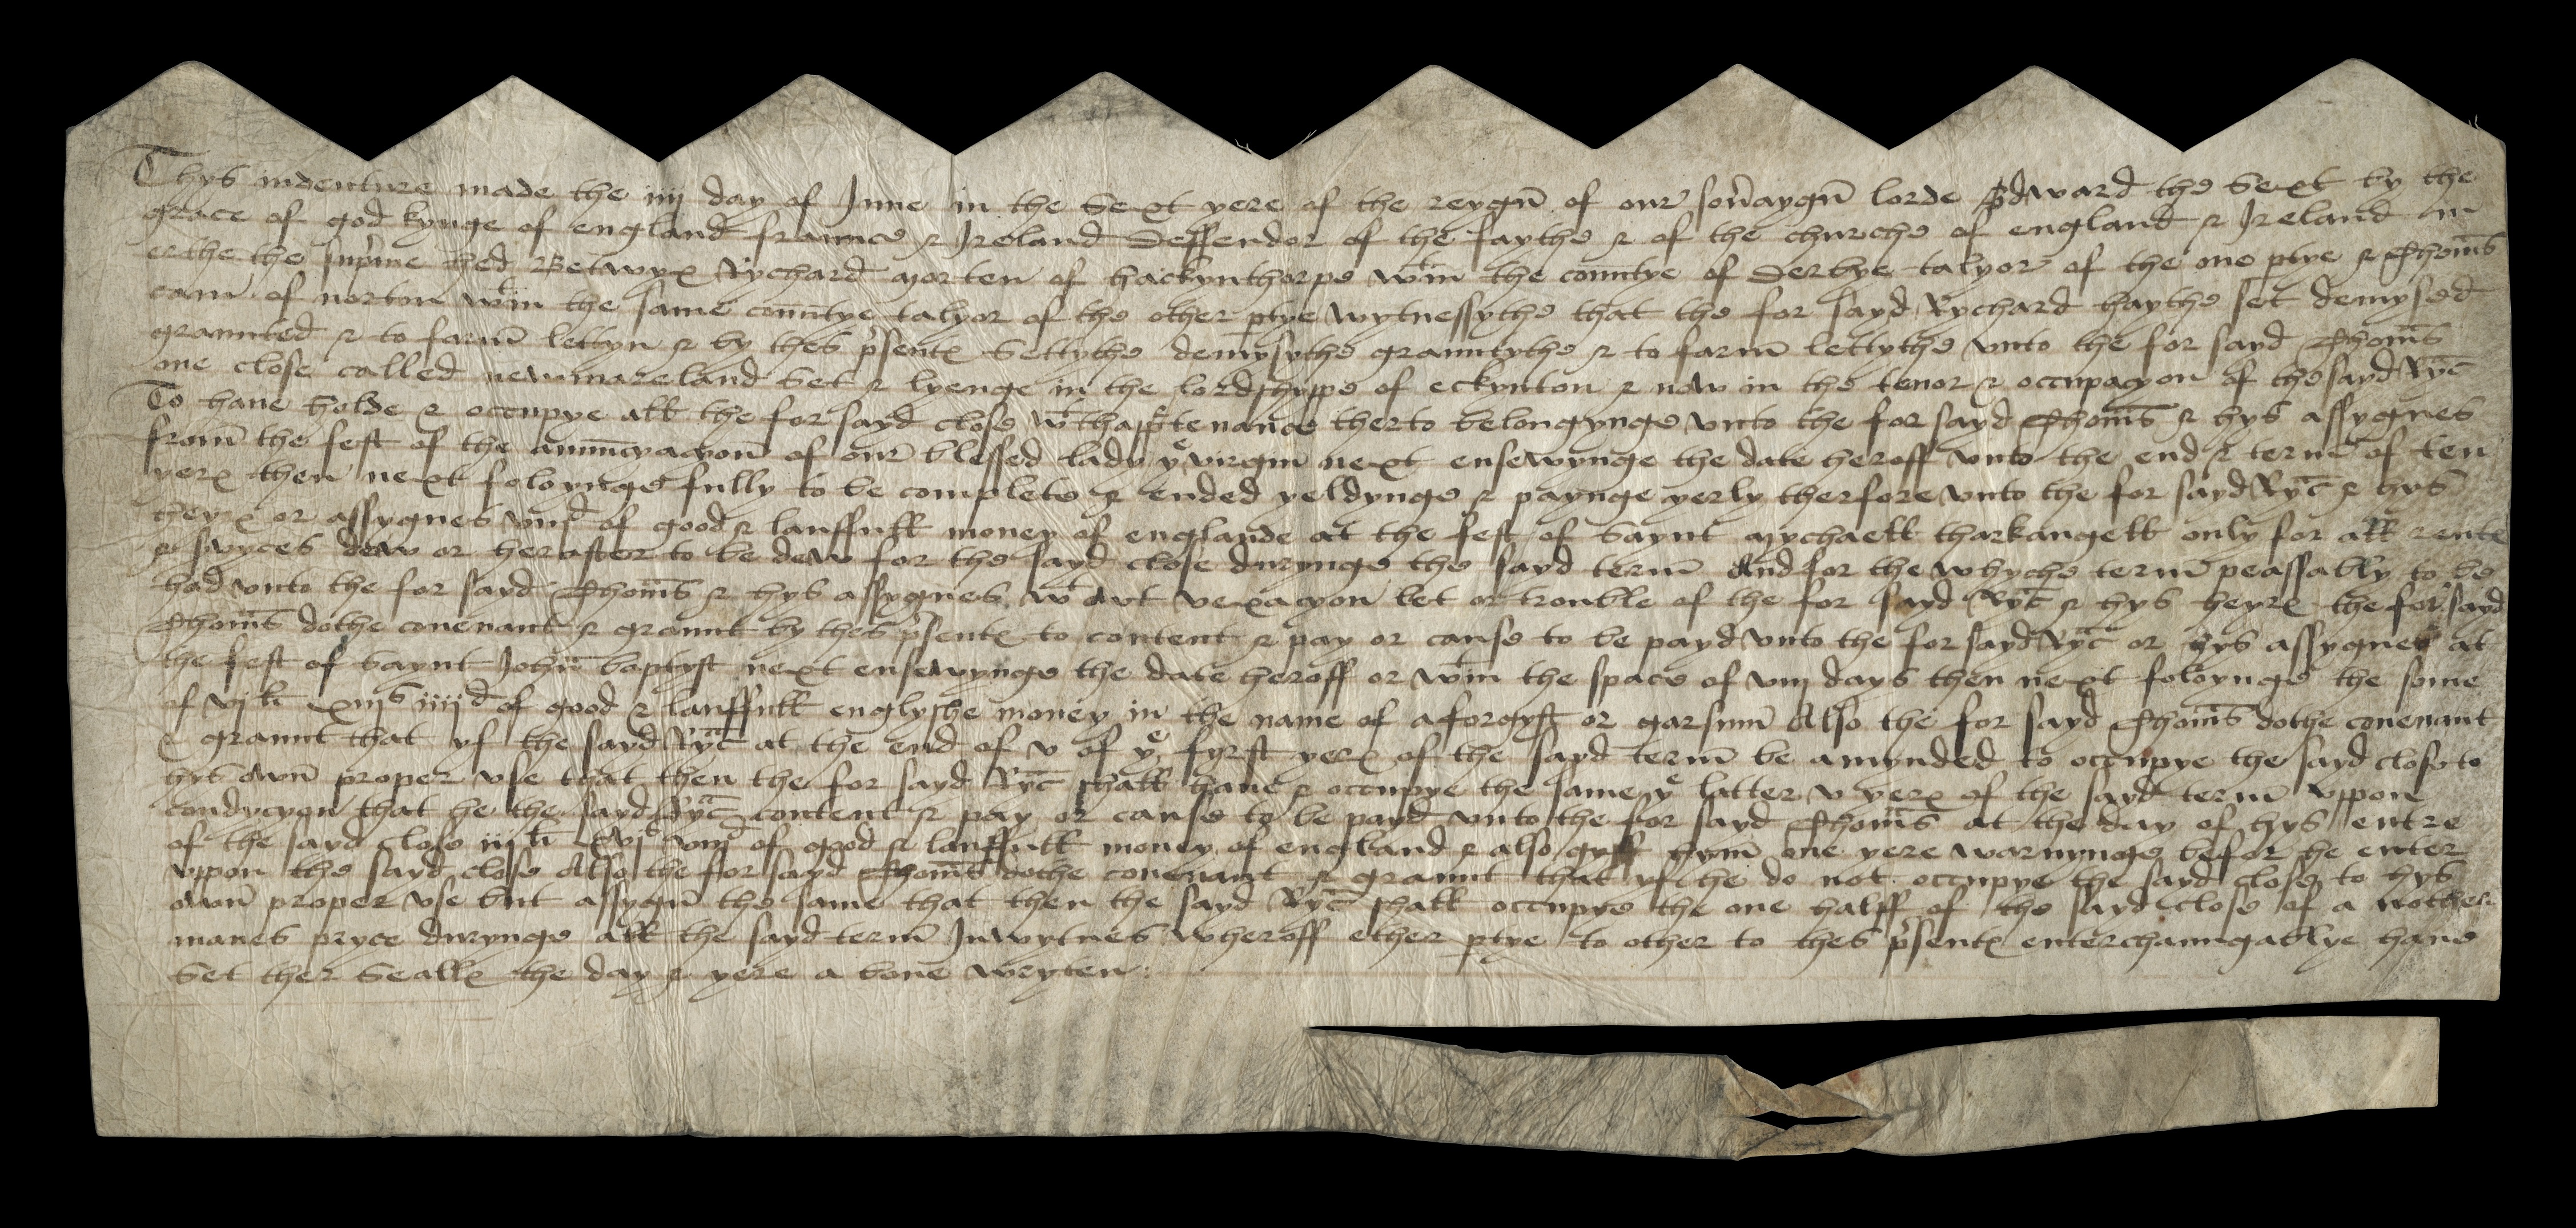 Thys indenture made the iiij day of June in the sext yere of the reygn̄ of our sov̄aygn̄ lorde Edward the sext by the
grace of god kynge of england fraunce & Ireland deffendor of the faythe & of the churche of england & Ireland in
erthe the sup̄me hed Betwyx Rychard morten of hackynthorpe wᵗin the countye of derbye talyor of the one ptye & Thom̄s
cam of norton wᵗin the same countye talyor of the other ptye wytnessythe that the for sayd Rychard haythe set demysed
graunted & to farm̄ lettyn & by thes p̄sentꝭ settythe demysythe grauntythe & to farm̄ lettythe unto the for sayd Thom̄s
one close called newmareland set & lyenge in the lordshyppe of eckynton & now in the tenor & occupacyon of the sayd Ryc̄
To haue holde & occupye all the for sayd close wᵗ thapp̄tenance therto belongynge unto the for sayd Thom̄s & hys assygnes
from̄ the fest of the annūcyacyon̄ of our blessed lady yᵉ virgin next ensewynge the date heroff unto the end & term̄ of ten
yerꝭ then next foloynge fully to be complete & ended yeldynge & paynge yerly therfore unto the for sayd Ryc̄ & hys
heyrꝭ or assygnes viijᵈ of good & lauffull money of englande at the fest of saynt mychaell tharkangell only for all rente
& s̄vyces dew or herafter to be dew for the sayd close durynge the sayd term̄ And for the whyche term̄ peassably to be
had unto the for sayd Thom̄s & hys assygnes wᵗ owt vexacyon let or trouble of the for sayd Ryc̄ & hys heyrꝭ the for sayd
Thom̄s dothe couenant & graunt by thes p̄sentꝭ to content & pay or cause to be payd unto the for sayd Ryc̄ or hys assygnes at
the fest of saynt John̄ baptyst next ensewynge the date heroff or wᵗin the space of viij days then next foloynge the some
of vj li xiijˢ iiijᵈ of good & lauffull englyshe money in the name of a forgyft or garsum̄ Also the for sayd Thom̄s dothe couenant
& graunt that yf the sayd Ryc̄ at the end of v of yᵉ fyrst yerꝭ of the sayd term̄ be amynded to occupye the sayd close to
hys own̄ proper use that then the for sayd Ryc̄ shall haue & occupye the same yᵉ latter v yerꝭ of the sayd term̄ uppon
condycyon that he the sayd Ryc̄ content & pay or cause to be payd unto the for sayd Thom̄s at the day of hys entre
of the sayd close iij li vjˢ viijᵈ of good & lauffull money of england & also gyff hym one yere warnynge befor he enter
uppon the sayd close Also the for sayd Thom̄s dothe couenant & graunt that yf he do not occupye the sayd close to hys
own̄ proper use but assygn̄ the same that then the sayd Ryc̄ shall occupye the one halff of the sayd close of a nother
manes pryce durynge all the sayd term̄ In wytnes wheroff ether ptye to other to thes p̄sentꝭ enterchaungablye haue
set ther seallꝭ the day & yere a boue wryten